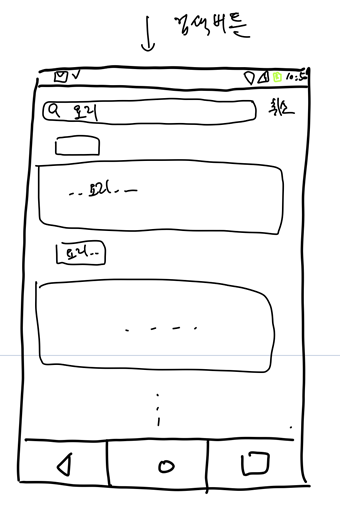 검색버튼
10:50
요리 취소
--요리--
요리..